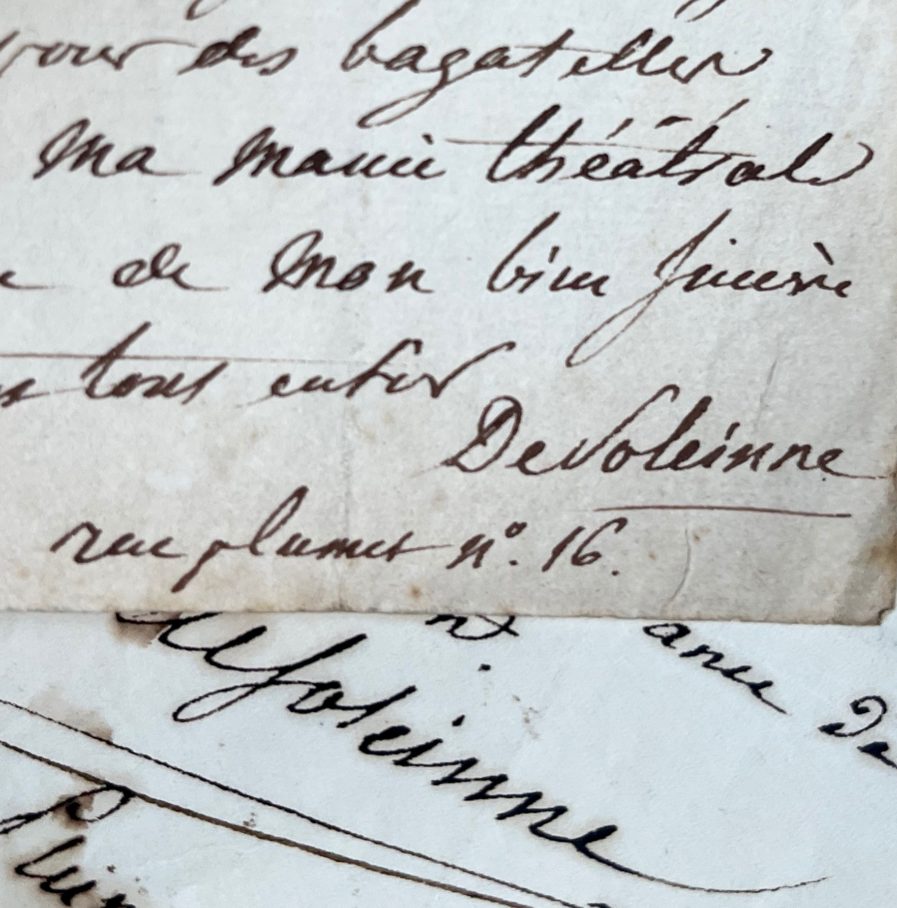 pour des bagatelles
ma manie théâtrale
de mon bien sincère
tout entier
DeSoleinne
rue plumet n°. 16.
deSoleinne